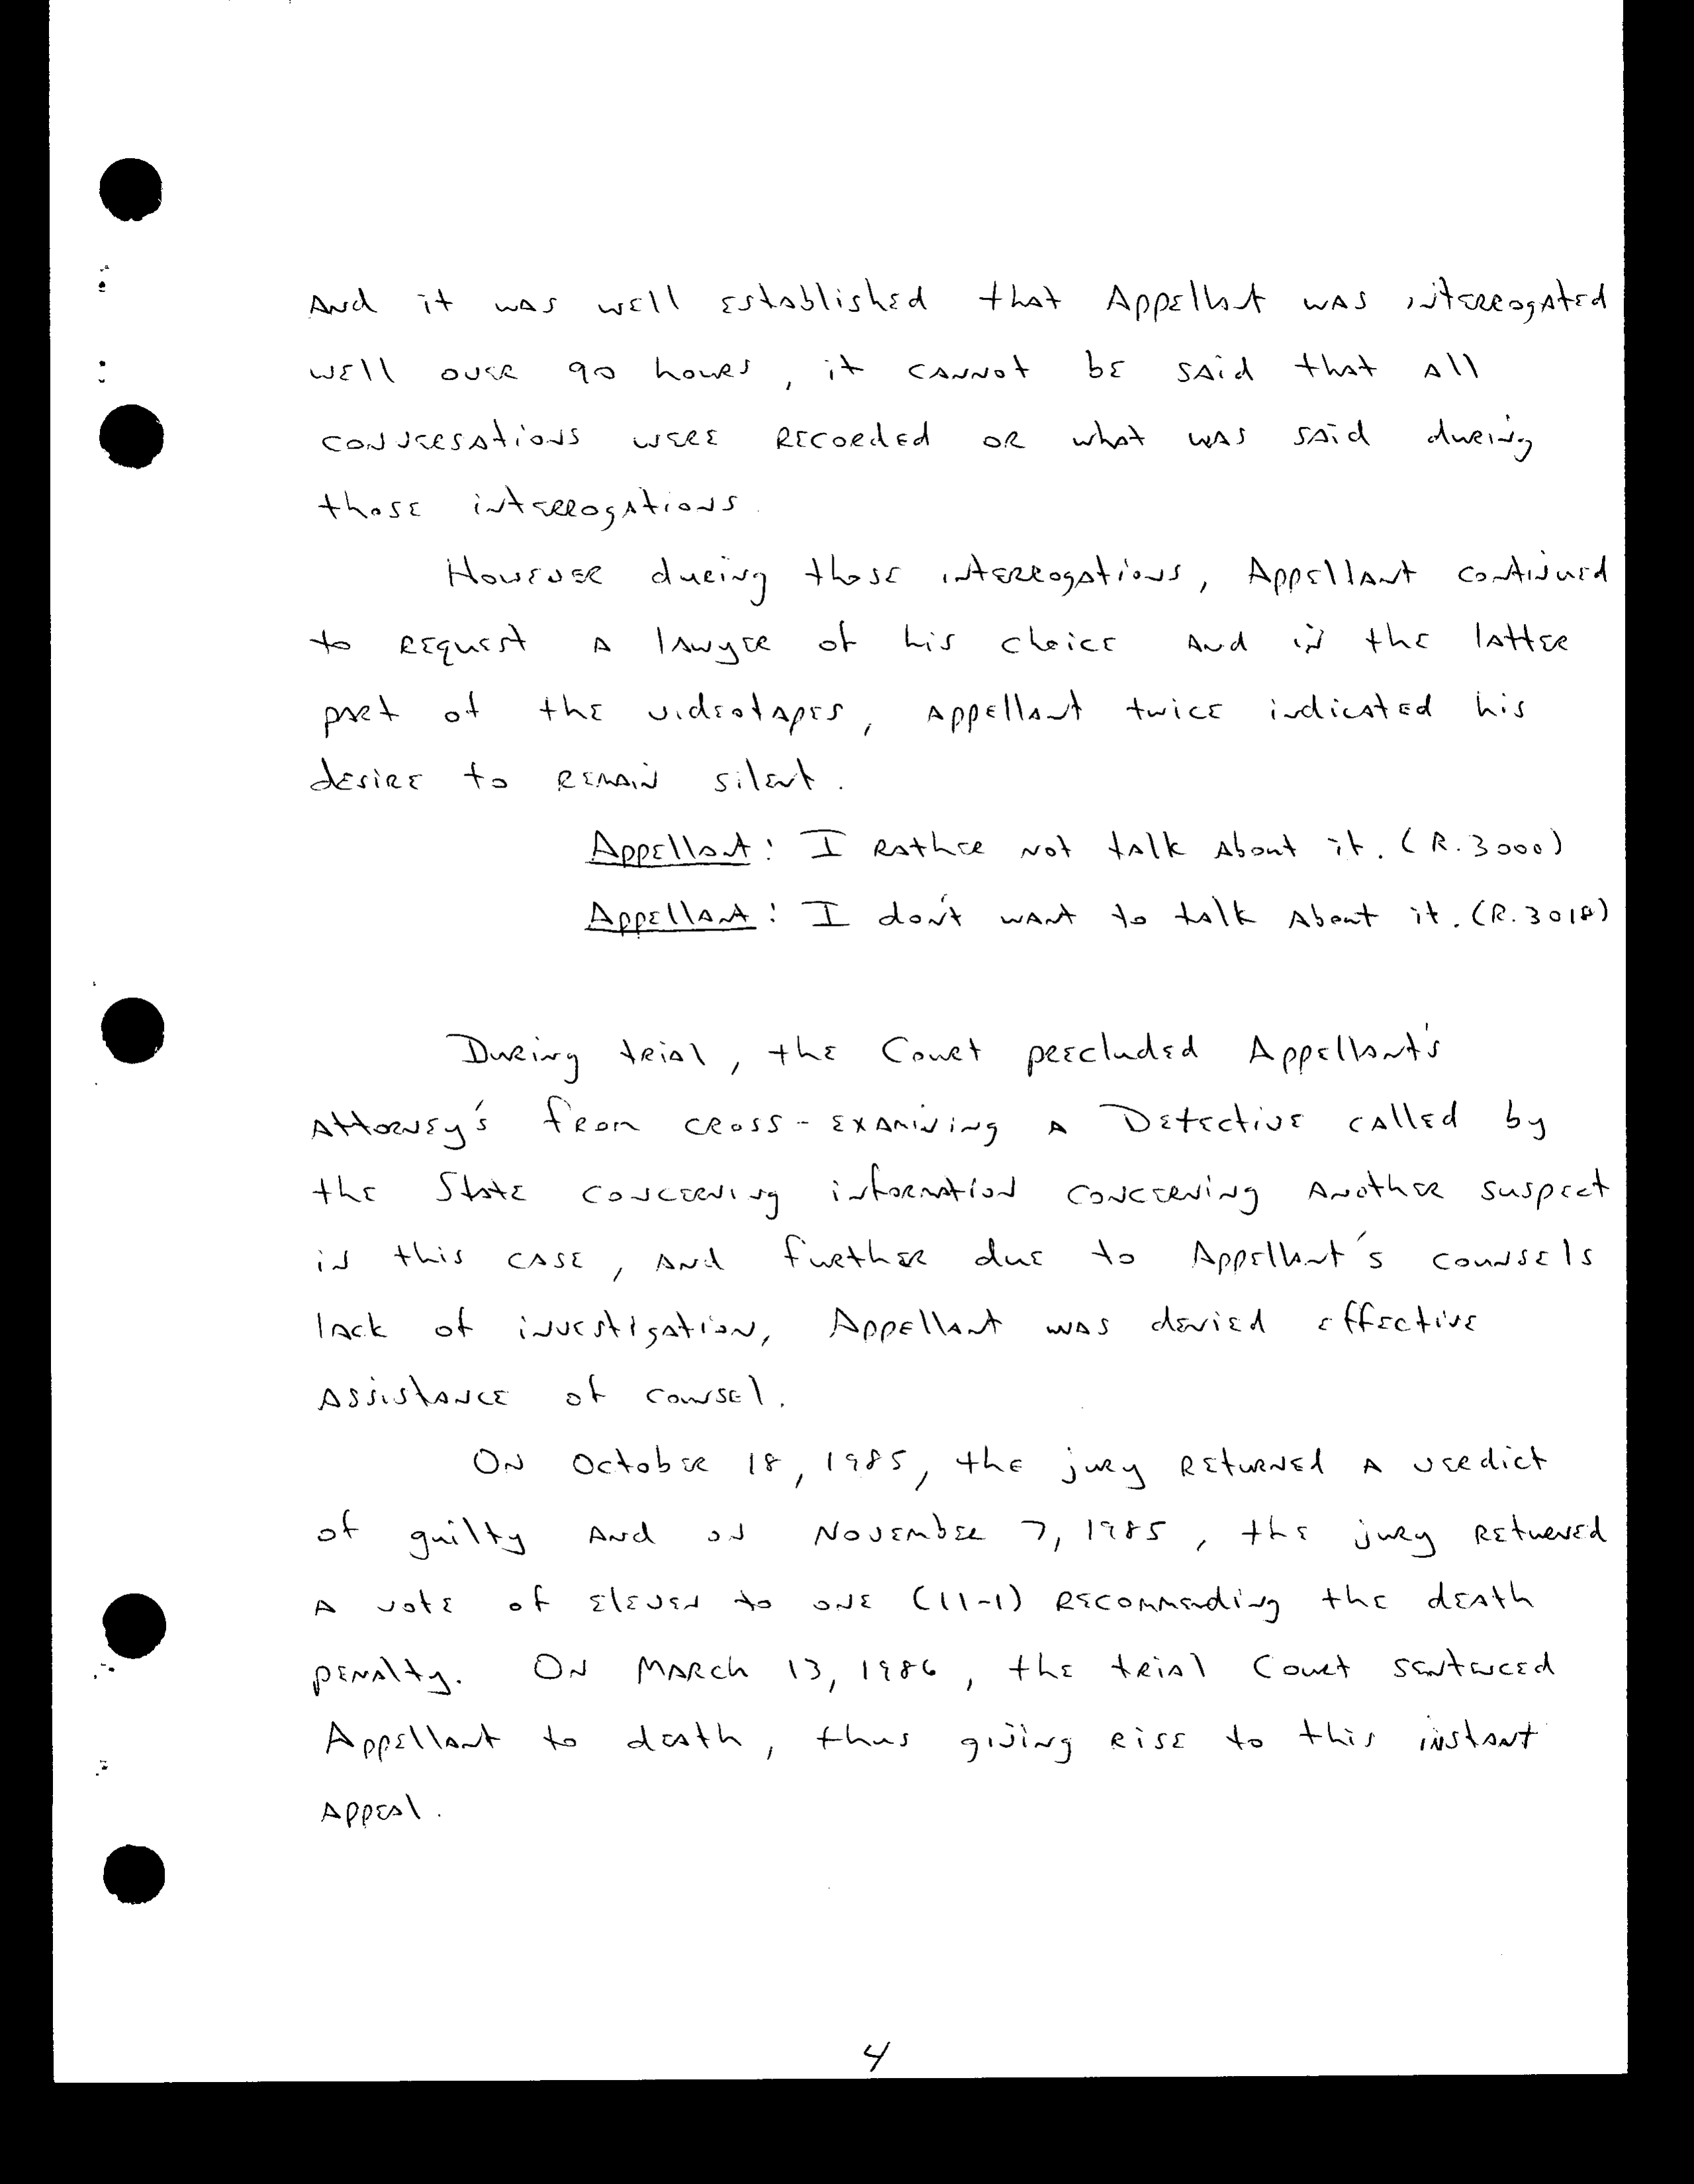 And it was well established that Appellant was interrogated
well over 90 hours, it cannot be said that all
conversations were recorded or what was said during
those interrogations.
However during those interrogations, Appellant continued
to request a lawyer of his choice and in the latter
part of the videotapes, appellant twice indicated his
desire to remain silent.
Appellant: I rather not talk about it. (R. 3000)
Appellant: I don't want to talk about it. (R. 3018)
During trial, the Court precluded Appellant's
Attorney's from cross-examining a Detective called by
the State concerning information concerning another suspect
in this case, and further due to Appellant's counsels
lack of investigation, Appellant was denied effective
assistance of counsel.
On October 18, 1985, the jury returned a verdict
of guilty and on November 7, 1985, the jury returned
a vote of eleven to one (11-1) recommending the death
penalty. On March 13, 1986, the trial Court sentenced
Appellant to death, thus giving rise to this instant
appeal.
4